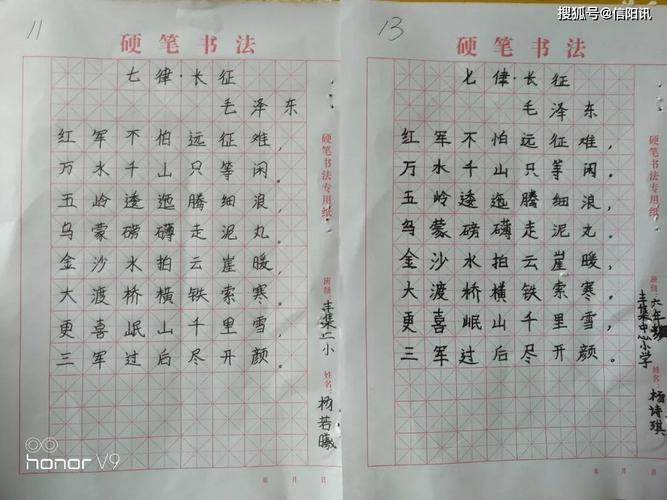 搜狐号@信阳讯
11
硬笔书法
七律·长征
毛泽东
红军不怕远征难，
万水千山只等闲。
五岭逶迤腾细浪，
乌蒙磅礴走泥丸。
金沙水拍云崖暖，
大渡桥横铁索寒。
更喜岷山千里雪，
三军过后尽开颜。
硬笔书法专用纸
班级
丰集一小
姓名
杨若曦
年 月 日
honor V9
13
硬笔书法
七律·长征
毛泽东
红军不怕远征难，
万水千山只等闲。
五岭逶迤腾细浪，
乌蒙磅礴走泥丸。
金沙水拍云崖暖，
大渡桥横铁索寒。
更喜岷山千里雪，
三军过后尽开颜。
硬笔书法专用纸
班级
六年级
丰集中心小学
姓名
杨诗琪
年 月 日